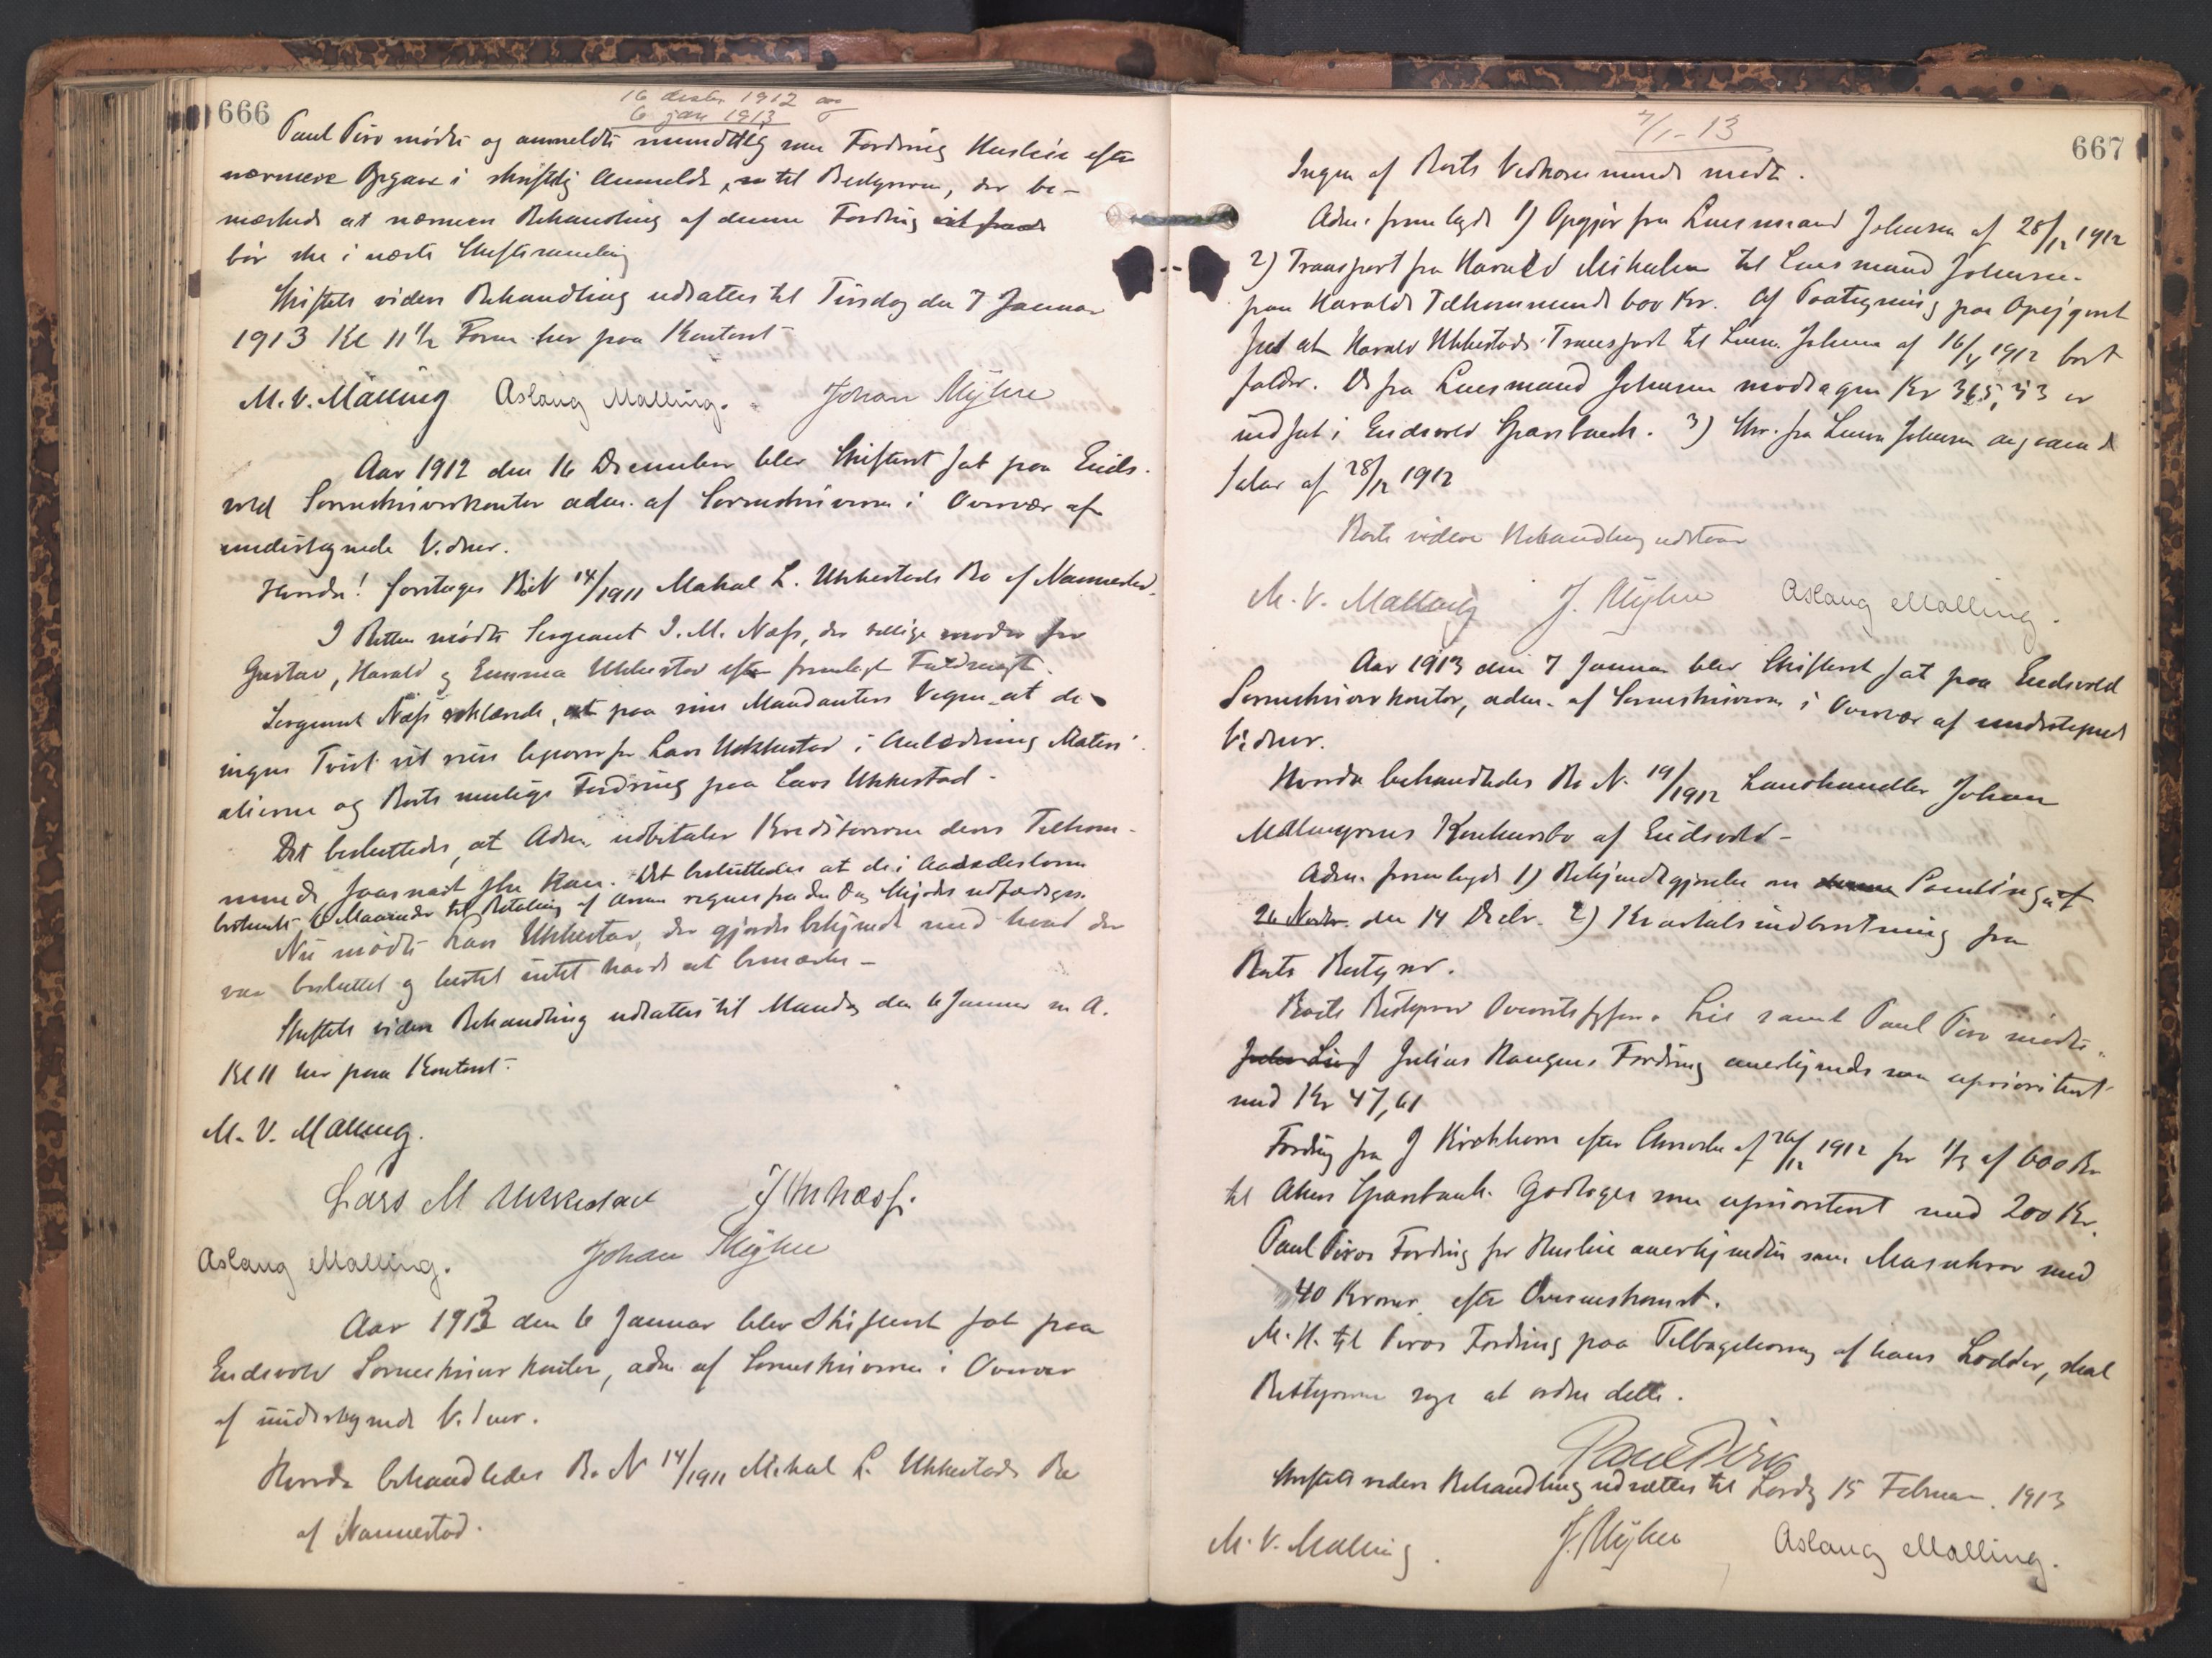 666
16 decbr 1912 og
6 jan 1913
Paul Piro mødte og anmeldte mundtlig sin Fordring Husleie efter
nærmere Opgave i skriftlig Anmeldelse til Bestyreren, der be-
mærkede at nærmere Behandling af denne Fordring
bør ske i næste Skiftesamling
Skiftets videre Behandling udsættes til Tirsdag den 7 Januar
1913 Kl 11½ Form. her paa Kontoret
M. V. Malling Aslaug Malling. Johan Myhre
Aar 1912 den 16 December blev Skifteret sat paa Eids-
vold Sorenskriverkontor adm. af Sorenskriveren i Overvær af
undertegnede Vidner.
Hvorda! foretages Bo N 14/1911 Mikal L. Ukkestads Bo af Nannestad.
I Retten mødte Sergeant I. M. Næss, der tillige møder for
Gustav, Harald og Emma Ukkestad efter fremlagt Fuldmagt.
Sergeant Næss erklærede, at paa sine Mandanters Vegne at de
ingen Tvist vil reise ligeoverfor Lars Ukkestad i Anledning Materi-
alierne og Boets mulige Fordring paa Lars Ukkestad.
Det besluttedes, at Adm. udbetaler Kreditorerne deres Tilkom-
mende saasnart ske kan. Det besluttedes at de i Aasædesloven
bestemte 6 Maaneder til Betaling af Arven regnes fra den Dag Skjødet udfærdiges.
Nu mødte Lars Ukkestad, der gjordes bekjendt med hvad der
var besluttet og hvortil intet havde at bemærke -
Skiftets videre Behandling udsættes til Mandag den 6 Januar n A.
Kl 11 her paa Kontoret.
M. V. Malling.
Lars M Ukkestad I M Næss.
Aslaug Malling. Johan Myhre
Aar 1913 den 6 Januar blev Skifteret sat paa
Eidsvold Sorenskriverkontor, adm. af Sorenskriveren i Overvær
af undertegnede Vidner.
Hvorda behandledes Bo N 14/1911 Mikal L. Ukkestads Bo
af Nannestad.
7/1-13
667
Ingen af Boets Vedkommende mødte.
Adm. fremlagde 1) Opgjør fra Lensmand Johnsen af 28/12 1912
2) Transport fra Harald Mikalsen til Lensmand Johnsen
paa Haralds Tilkommende 600 Kr. Af Paategning paa Opgjøret
sees at Harald Ukkestads Transport til Lensm. Johnsen af 16/4 1912 bort
falder. De fra Lensmand Johnsen modtagne Kr 365,33 er
indsat i Eidsvold Sparebank. 3) Skr. fra Lensm Johnsen angaaende
Salær af 28/12 1912
Boets videre Behandling udstaar
M. V. Malling J. Myhre Aslaug Malling.
Aar 1913 den 7 Januar blev Skifteret sat paa Eidsvold
Sorenskriverkontor, adm. af Sorenskriveren i Overvær af undertegnede
Vidner.
Hvorda behandledes Bo N. 19/1912 Landhandler Johan
Konkursbo af Eidsvold -
Adm. fremlagde 1) Bekjendtgjørelse om Samling
26 Novbr. den 14 Decbr. 2) Kvartalsindberetning fra
Boets Bestyrer.
Boets Bestyrer Overretssagfører Lie samt Paul Piro mødte.
Julius Haugens Fordring anerkjendes som uprioritert
med Kr 47,61
Fordring fra J Kirkhorn efter Anmeldelse af 20/12 1912 for 1/3 af 600 Kr
til Akers Sparebank. Godtages som uprioritert med 200 Kr.
Paul Piros Fordring for Husleie anerkjendes som Massekrav med
40 Kroner efter Overenskomst.
M. H. til Piros Fordring paa Tilbagelevering af hans Lodder, skal
Bestyreren søge at ordne dette.
Paul Piro
Skiftets videre Behandling udsættes til Lørdag 15 Februar 1913
M. V. Malling. J. Myhre Aslaug Malling.